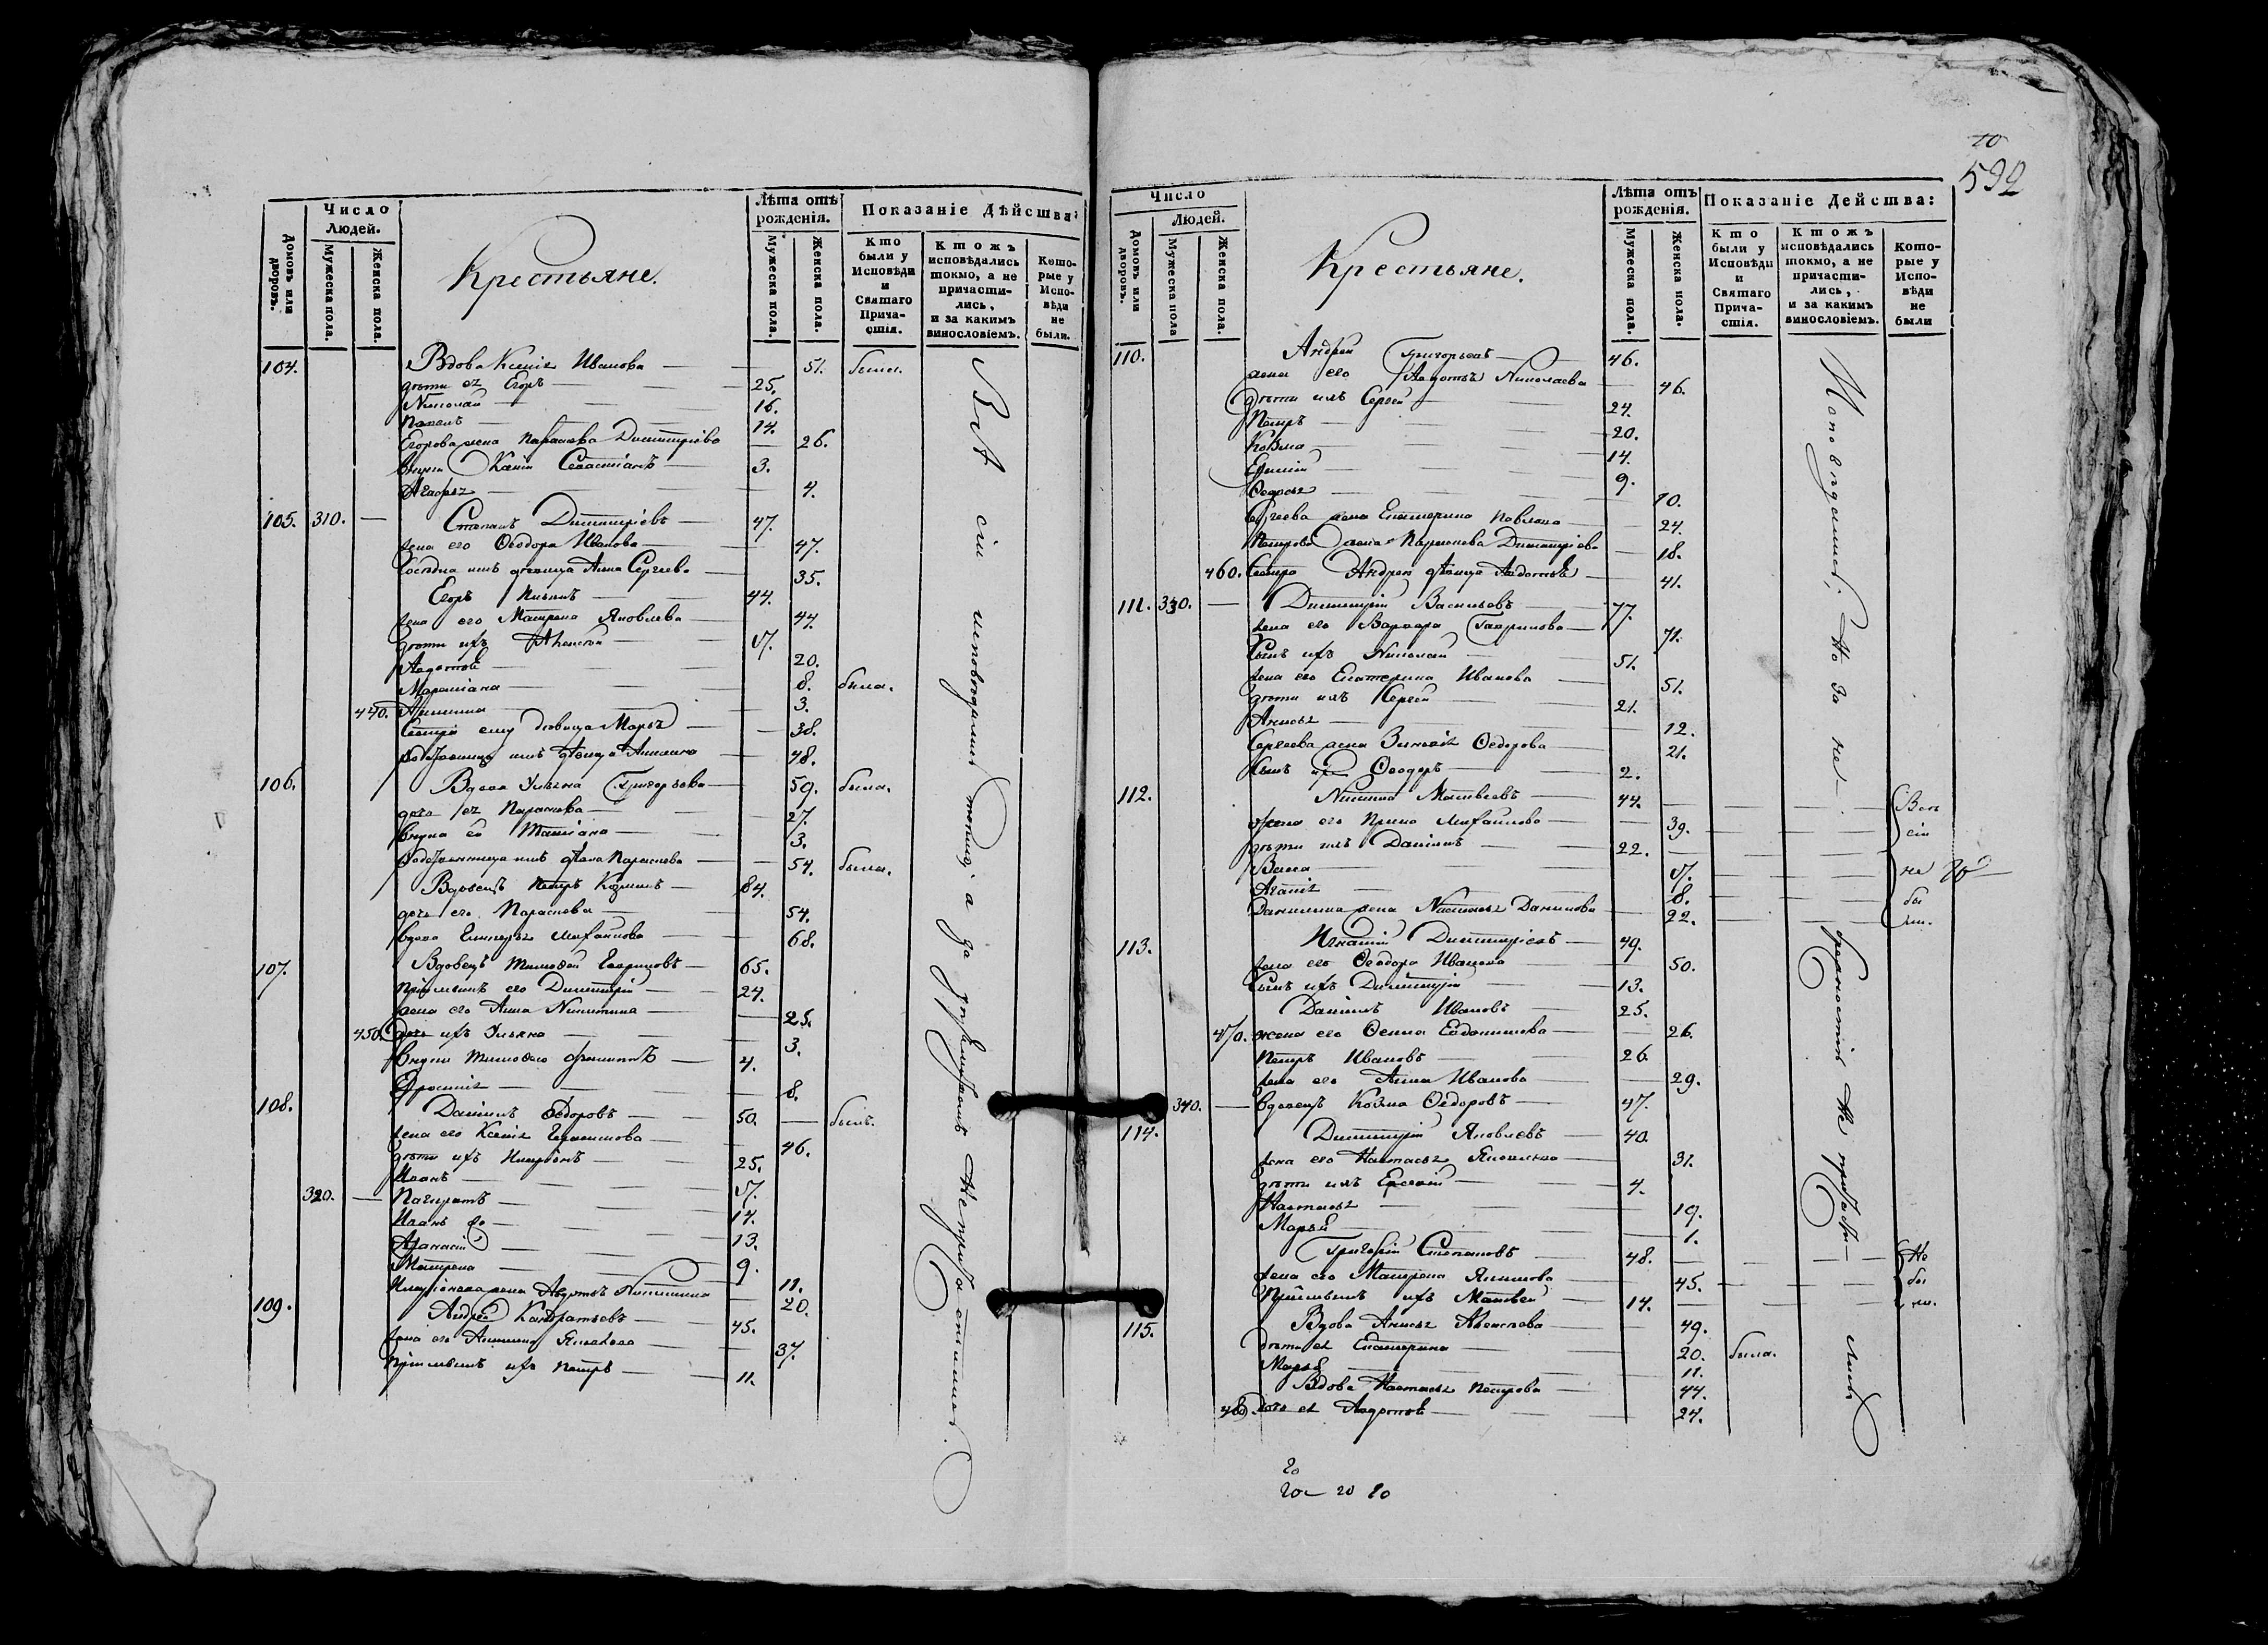 Число Людей.
Домовъ или дворовъ.
Мужеска пола.
Женска пола.
Крестьяне.
Лѣта отъ рожденія.
Мужеска пола.
Женска пола.
Показаніе Дѣйства:
Кто были у Исповѣди и Святаго Причастія.
Ктожъ исповѣдались токмо, а не причастились, и за какимъ винословіемъ.
Которые у Исповѣди не были.
104. Вдова Ксенія Иванова 51. была.
дѣти ея Егоръ 25.
Николай 16.
Павелъ 14.
Егорова жена Параскева Димитріева 26.
внуки Ксеніи Севастіанъ 3.
Агафья 4.
105. 310. Степанъ Димитріевъ 47.
жена его Ѳеодора Иванова 47.
дѣвица Анна Сергеева 35.
Егоръ 44.
жена его Матрена Яковлева 44.
дѣти ихъ Алексѣй 17.
Авдотья 20.
Маріанна 8. была.
440. 3.
дѣвица Марья 38.
48.
106. Вдова Ульяна Григорьева 59. была.
дочь ея Параскева 27.
внука ея Татіана 3.
Параскева 54. была.
Вдовецъ Петръ Козминъ 84.
дочь его Параскева 54.
вдова Гликерья Михайлова 68.
107. Вдовецъ Тимоѳей Гавриловъ 65.
пріемышъ его Димитрій 24.
жена его Анна Никитина 25.
450. дочь ихъ Ульяна 3.
внуки Тимоѳея Филиппъ 4.
8.
108. Даніилъ Ѳедоровъ 50. былъ.
жена его Ксенія 46.
дѣти ихъ Иларіонъ 25.
Иванъ 17.
320. Панкратъ 14.
Иванъ 13.
Афанасій 9.
Матрена 11.
Иларіонова жена Авдотья Никитина 20.
109. Андрей Кондратьевъ 45.
жена его Яковлева 37.
пріемышъ ихъ Петръ 11.
Всѣ сіи исповѣдались токмо, а за не причастились.
10
592
Число Людей.
Домовъ или дворовъ.
Мужеска пола
Женска пола.
Крестьяне.
Лѣта отъ рожденія.
Мужеска пола.
Женска пола.
Показаніе Дейсшва:
Кто были у Исповѣди и Святаго Причастія.
Ктожъ исповѣдались токмо, а не причастились, и за какимъ винословіемъ.
Которые у Исповѣди не были
110. Андрей Григорьевъ 46.
жена его Авдотья Николаева 46.
дѣти ихъ Сергей 24.
Петръ 20.
Козма 14.
9.
Ѳедосья 10.
Сергеева жена Екатерина Павлова 24.
Петрова жена Параскева Димитріева 18.
460. Сестра Андрея дѣвица Авдотья 41.
111. 330. Димитрій Васильевъ 77.
жена его Варвара Гаврилова 71.
Сынъ ихъ Николай 51.
жена его Екатерина Иванова 51.
дѣти ихъ Сергей 21.
Анисья 12.
Сергеева жена Зиновія Ѳедорова 21.
Сынъ их Ѳеодоръ 2.
112. Никита Матвѣевъ 44. Всѣ
жена его Ирина Михайлова 39. сіи
дѣти ихъ Даніилъ 22.
Васса 17. не
Агапія 8. бы
Данилина жена Настасья Данилова 22. ли.
113. Игнатій Димитріевъ 49.
жена его Ѳеодора Иванова 50.
Сынъ ихъ Димитрій 13.
Даніилъ Ивановъ 25.
470. жена его Евдокимова 26.
Петръ Ивановъ 26
жена его Анна Иванова 29.
340. вдовецъ Козма Ѳедоровъ 47.
114. Димитрій Яковлевъ 40.
жена его Настасья 31.
дѣти ихъ Евсевій 4.
Настасья 19.
Марья 1.
Григорій Степановъ 48. Не
жена его Матрена 45. бы
Пріемышъ ихъ Матвей 14. ли.
115. Вдова Анисья Алексѣева 49.
дѣти ея Екатерина 20. была.
Марья 11.
Вдова Настасья Петрова 44.
480. дочь ея Авдотья 24.
Исповѣдались, но за не
20
20 20 20